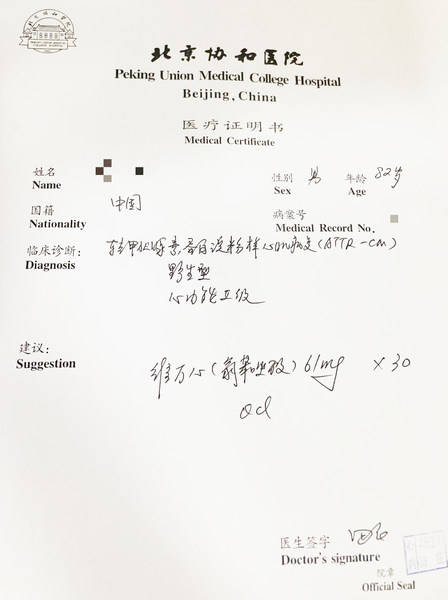 北京协和医院
Peking Union Medical College Hospital
Beijing, China
医疗证明书
Medical Certificate
姓名 性别 男 年龄 82岁
Name Sex Age
国籍 中国 病案号
Nationality Medical Record No.
临床诊断: 转甲状腺素蛋白淀粉样心肌病变(ATTR-CM)
Diagnosis 野生型
心功能II级
建议:
Suggestion
维万心(氯苯唑酸) 61mg × 30
qd
医生签字
Doctor's signature
院章
Official Seal